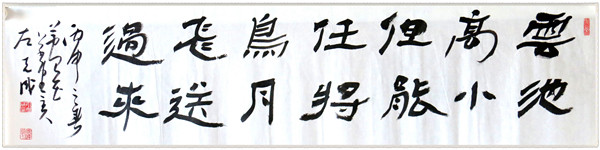 雲高但任鳥飛過
池小能將月送來
丙申之春
左克成